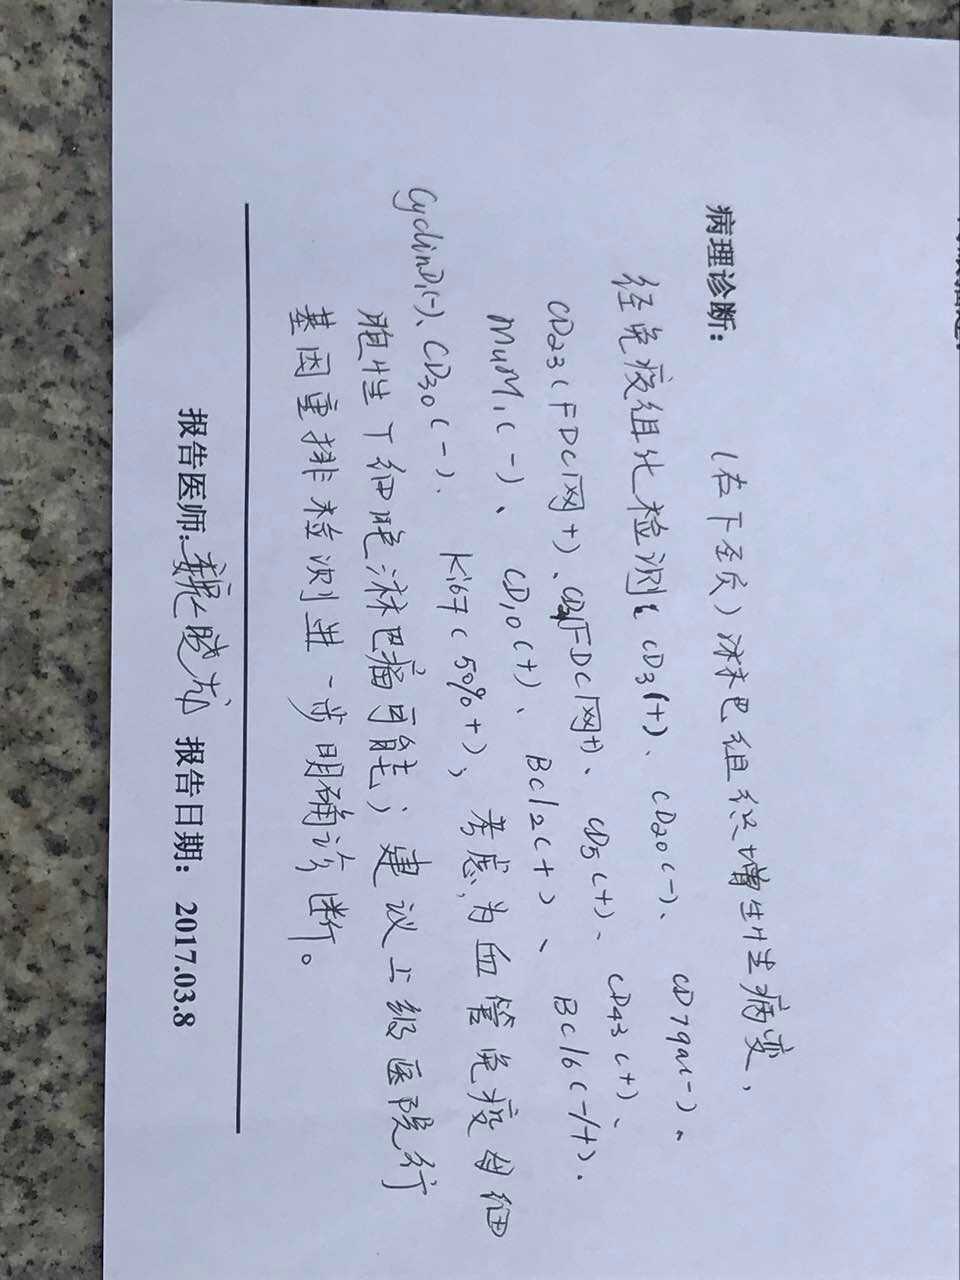 病理诊断:
(右下至页)淋巴组织增生性病变,
经免疫组化检测:CD3(+)、CD20(-)、CD79a(-)、
CD23(FDC网+)、CD21(FDC网+)、CD5(+)、CD43(+)、
MuM1(-)、CD10(+)、Bcl2(+)、Bcl6(-/+).
CyclinD1(-)、CD30(-)、Ki67(50%+),考虑为血管免疫母细
胞性T细胞淋巴瘤可能;建议上级医院行
基因重排检测进一步明确诊断。
报告医师: 报告日期: 2017.03.8